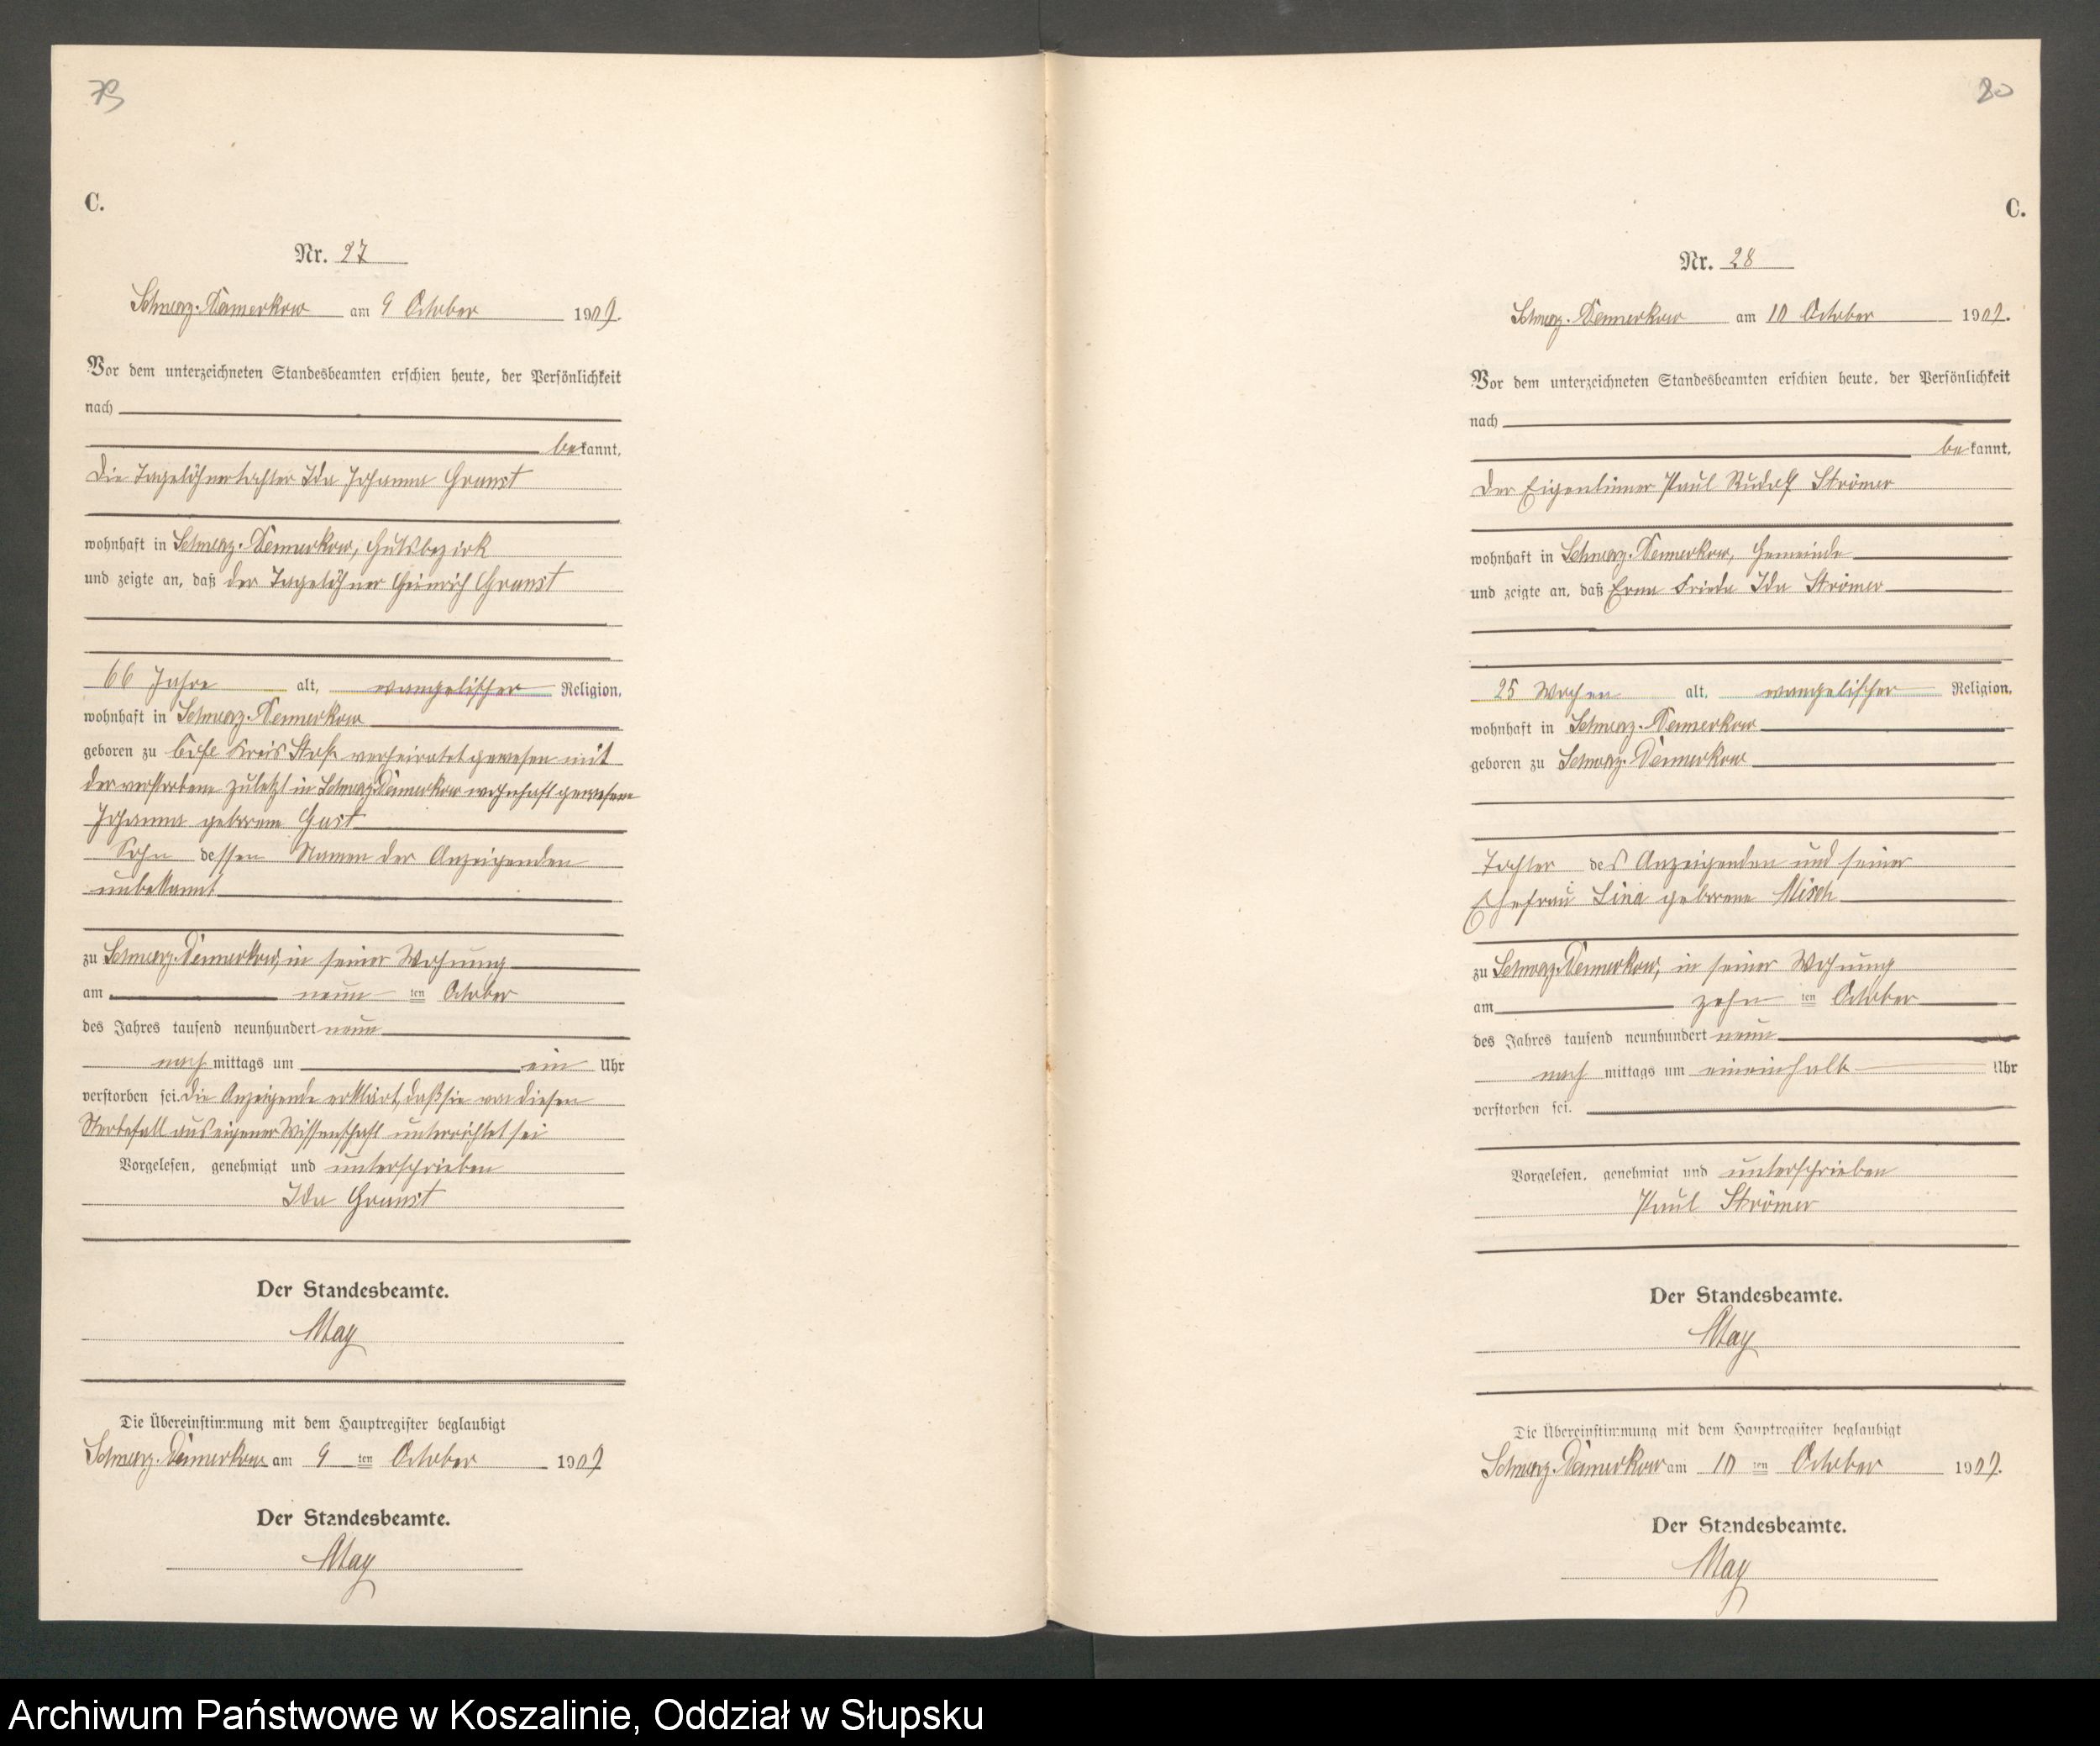 79
C.
Nr. 27
Schwarz-Damerkow am 9 October 1909.
Vor dem unterzeichneten Standesbeamten erschien heute, der Persönlichkeit
nach
bekannt,
die Tagelöhnertochter Ida Johanna Granst
wohnhaft in Schwarz-Damerkow, Gutsbezirk
und zeigte an, daß der Tagelöhner Heinrich Granst
66 Jahre alt, evangelischer Religion,
wohnhaft in Schwarz-Damerkow
geboren zu Kreis Stolp verheiratet gewesen mit
der verstorbene zuletzt in Schwarz-Damerkow wohnhaft gewesene
Johanna geborene Gust
Sohn dessen Namen der Anzeigenden
unbekannt
zu Schwarz-Damerkow, in seiner Wohnung
am neun ten October
des Jahres tausend neunhundert neun
nach mittags um ein Uhr
verstorben sei. Die Anzeigende erklärt, daß sie von diesen
Sterbefall aus eigener Wissenschaft unterrichtet sei
Vorgelesen, genehmigt und unterschrieben
Ida Granst
Der Standesbeamte.
May
Die Übereinstimmung mit dem Hauptregister beglaubigt
Schwarz-Damerkow am 9 ten October 1909
Der Standesbeamte.
May
80
C.
Nr. 28
Schwarz-Damerkow am 10 October 1909.
Vor dem unterzeichneten Standesbeamten erschien heute, der Persönlichkeit
nach
bekannt,
der Eigentümer Paul Rudolf Strömer
wohnhaft in Schwarz-Damerkow, Gemeinde
und zeigte an, daß Erna Frieda Ida Strömer
25 Wochen alt, evangelischer Religion,
wohnhaft in Schwarz-Damerkow
geboren zu Schwarz-Damerkow
Tochter des Anzeigenden und seiner
Ehefrau Lina geborene Misch
zu Schwarz-Damerkow, in seiner Wohnung
am zehn ten October
des Jahres tausend neunhundert neun
nach mittags um eineinhalb Uhr
verstorben sei.
Vorgelesen, genehmigt und unterschrieben
Paul Strömer
Der Standesbeamte.
May
Die Übereinstimmung mit dem Hauptregister beglaubigt
Schwarz-Damerkow am 10 ten October 1909.
Der Standesbeamte.
May
Archiwum Państwowe w Koszalinie, Oddział w Słupsku